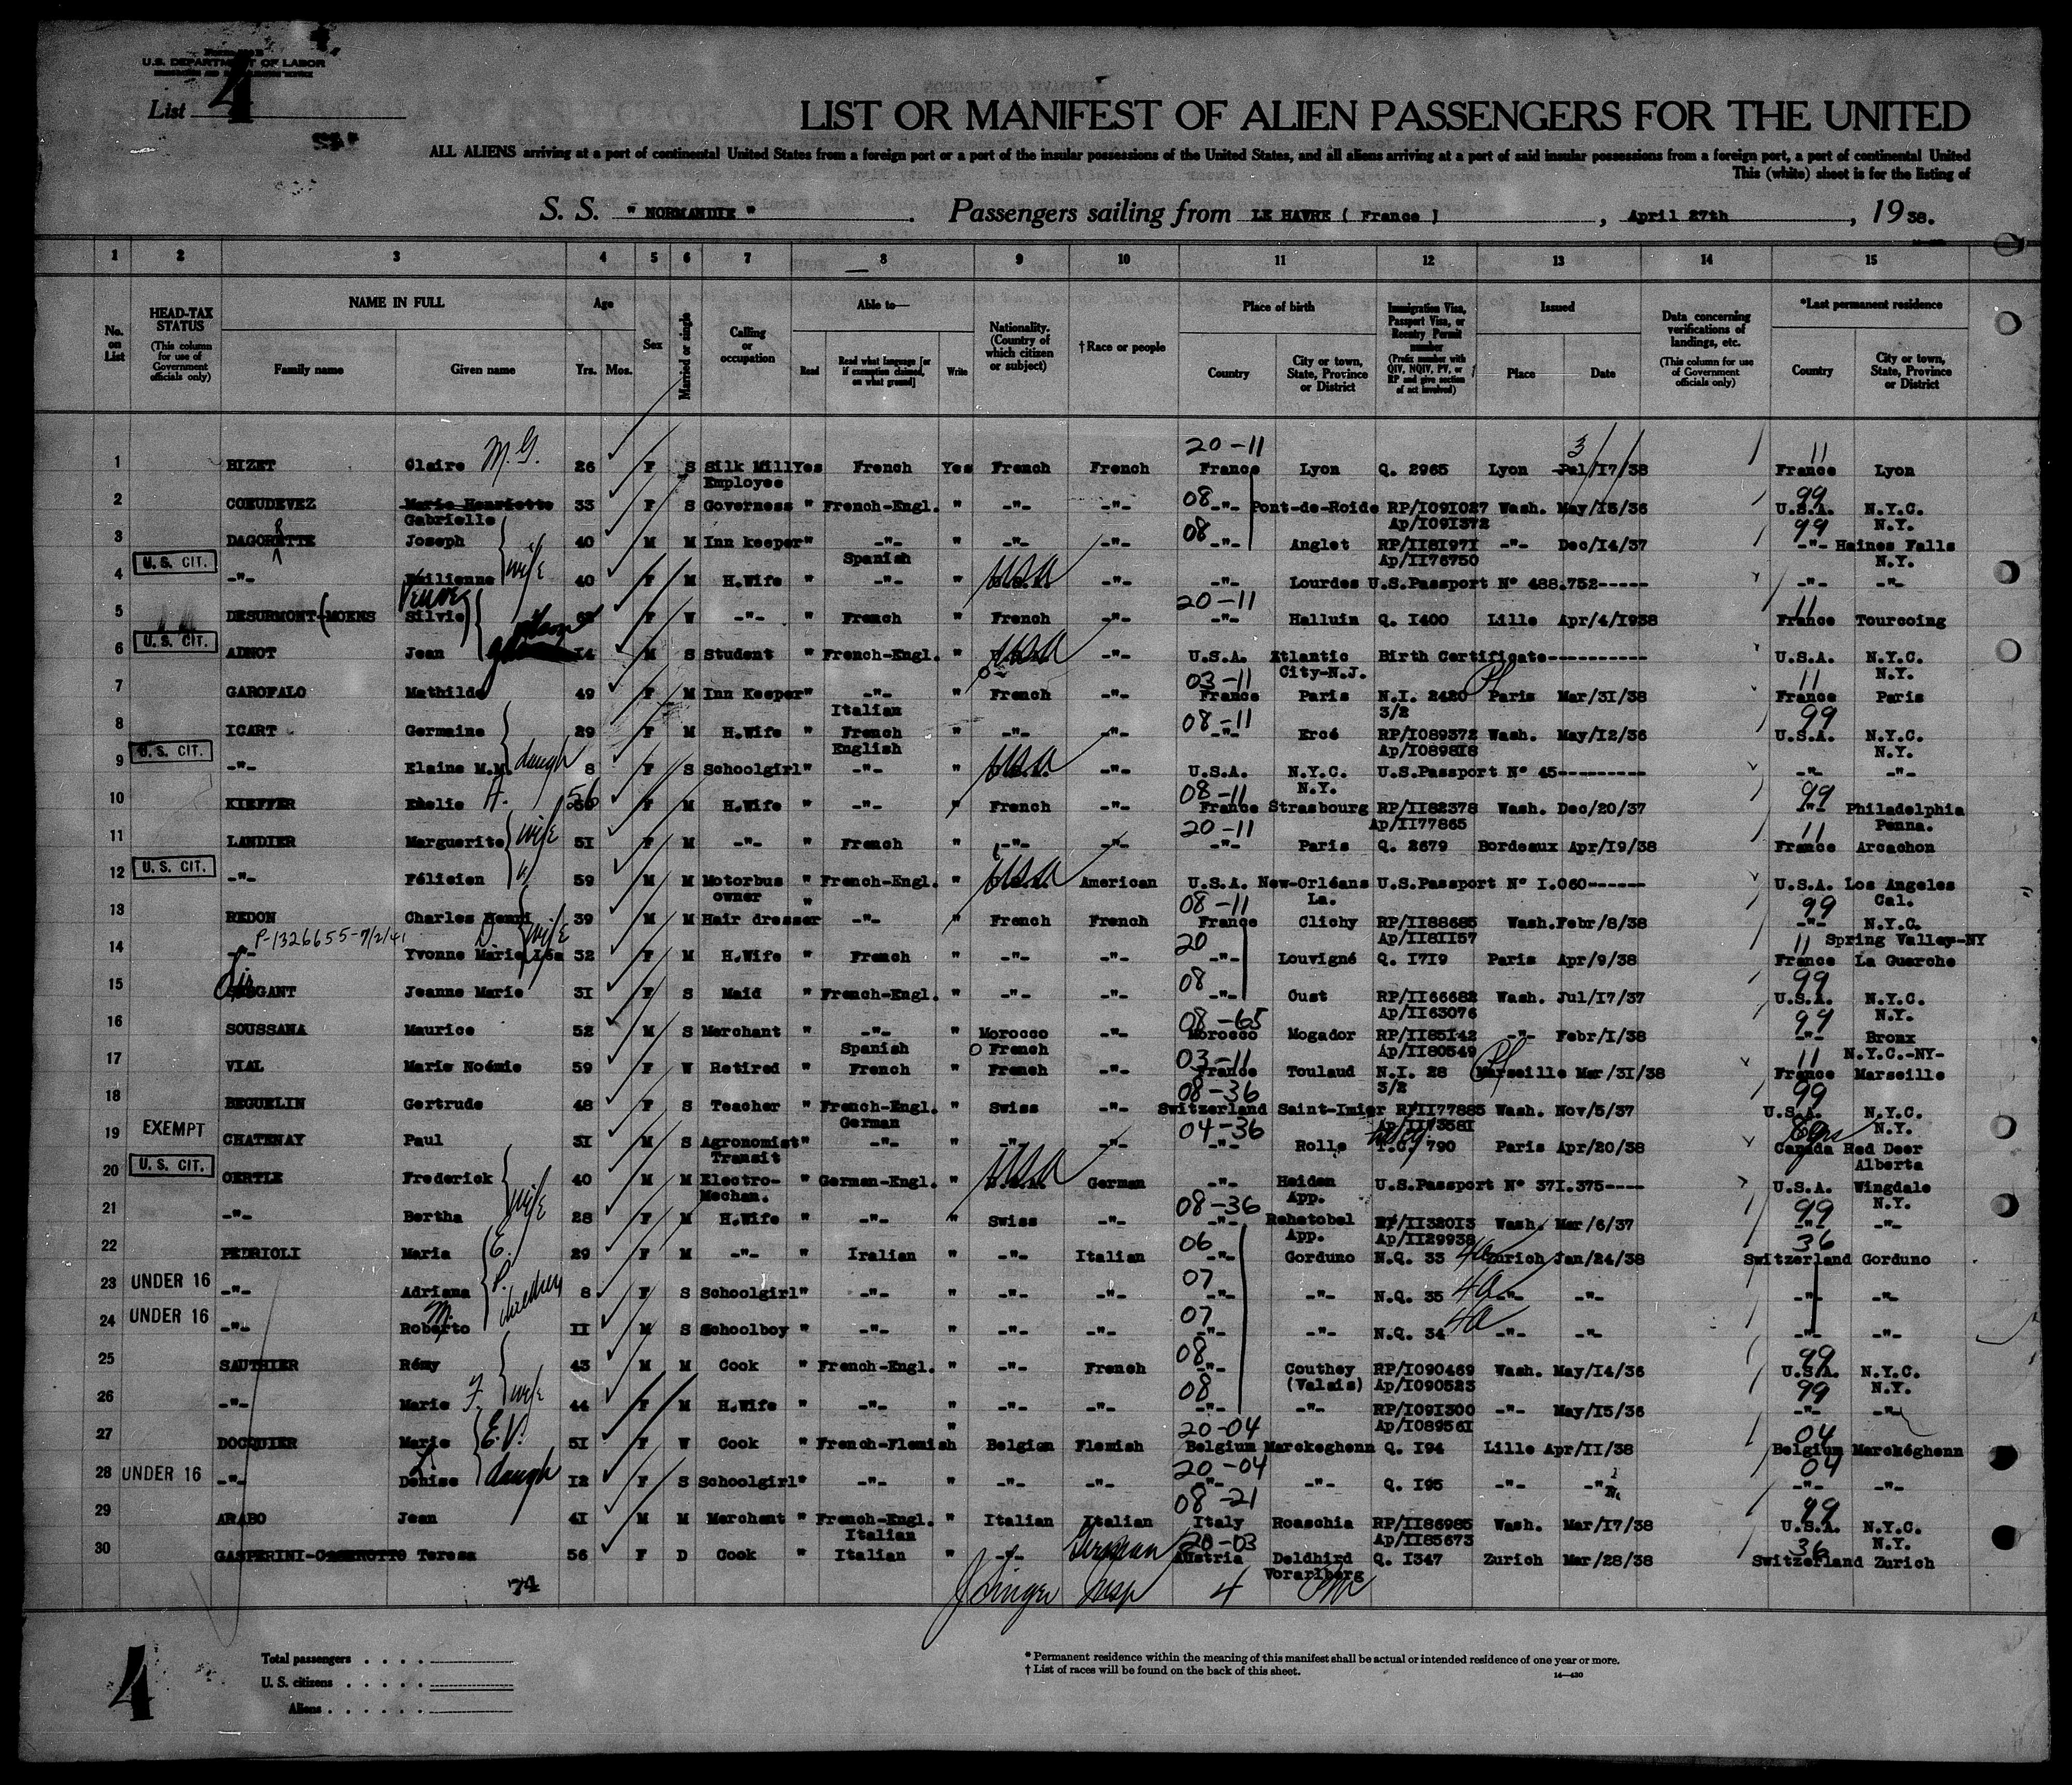 Form 500 B
U.S. DEPARTMENT OF LABOR
List 4
LIST OR MANIFEST OF ALIEN PASSENGERS FOR THE UNITED
ALL ALIENS arriving at a port of continental United States from a foreign port or a port of the insular possessions of the United States, and all aliens arriving at a port of said insular possessions from a foreign port, a port of continental United
This (white) sheet is for the listing of
S. S. " NORMANDIE " . Passengers sailing from LE HAVRE ( France ) , April 27th , 19 38.
1 2 3 4 5 6 7 8 9 10 11 12 13 14 15
No. on List
HEAD-TAX STATUS (This column for use of Government officials only)
NAME IN FULL Family name Given name
Age Yrs. Mos.
Sex
Married or single
Calling or occupation
Able to— Read Read what language [or if exemption claimed, on what ground] Write
Nationality. (Country of which citizen or subject)
†Race or people
Place of birth Country City or town, State, Province or District
Immigration Visa, Passport Visa, or Reentry Permit number (Prefix number with QIV, NQIV, PV, or RP and give section of act involved)
Issued Place Date
Data concerning verifications of landings, etc. (This column for use of Government officials only)
*Last permanent residence Country City or town, State, Province or District
20-11 3 11
1 BIZET Claire M. G. 26 F S Silk Mill Yes French Yes French French France Lyon Q. 2965 Lyon /17/38 France Lyon
Employee
08 99
2 COEUDEVEZ Marie Henriette 33 F S Governess " French-Engl. " -"- -"- -"- Pont-de-Roide RP/I091027 Wash. May/15/36 U.S.A. N.Y.C.
Gabrielle Ap/I091372 N.Y.
08 99
3 DAGORRETTE Joseph 40 M M Inn keeper " -"- " -"- -"- -"- Anglet RP/II81971 -"- Dec/14/37 -"- Haines Falls
Spanish Ap/II76750 N.Y.
U. S. CIT.
4 -"- Philienne wife 40 F M H.Wife " -"- " USA -"- -"- Lourdes U.S.Passport N° 488.752----- -"- -"-
Veuve 20-11 11
5 DESURMONT-(MOENS Silvie F W -"- " French " French -"- -"- Halluin Q. I400 Lille Apr/4/I938 France Tourcoing
U. S. CIT. grandson
6 ADNOT Jean 14 M S Student " French-Engl. " USA -"- U.S.A. Atlantic Birth Certificate---------- U.S.A. N.Y.C.
City-N.J. N.Y.
03-11 11
7 GAROFALO Mathilde 49 F M Inn Keeper " -"- " French -"- France Paris N.I. 2420 Paris Mar/31/38 France Paris
Italian 3/2
08-11 99
8 ICART Germaine 29 F M H.Wife " French " -"- -"- -"- Ercé RP/I089372 Wash. May/I2/36 U.S.A. N.Y.C.
English Ap/I089818 N.Y.
U. S. CIT.
9 -"- Elaine M.M. daugh 8 F S Schoolgirl " -"- " USA -"- U.S.A. N.Y.C. U.S.Passport N° 45--------- -"- -"-
N.Y.
08-11 99
10 KIEFFER Emelie A. 56 F M H.Wife " -"- " French -"- France Strasbourg RP/II82378 Wash. Dec/20/37 -"- Philadelphia
Ap/II77865 Penna.
20-11 11
11 LANDIER Marguerite wife 51 F M -"- " French " -"- -"- -"- Paris Q. 2679 Bordeaux Apr/I9/38 France Arcachon
U. S. CIT.
12 -"- Félicien 59 M M Motorbus " French-Engl. " USA American U.S.A. New-Orléans U.S.Passport N° I.060------ U.S.A. Los Angeles
owner La. Cal.
08-11 99
13 REDON Charles Henri 39 M M Hair dresser " -"- " French French France Clichy RP/II88685 Wash. Febr/8/38 -"- N.Y.C.
P-1326655-9/2/41 wife Ap/II81I57 Spring Valley-NY
20 11
14 -"- Yvonne Marie 32 F M H.Wife " French " -"- -"- -"- Louvigné Q. I719 Paris Apr/9/38 France La Guerche
08 99
15 Jeanne Marie 31 F S Maid " French-Engl. " -"- -"- -"- Oust RP/II66682 Wash. Jul/17/37 U.S.A. N.Y.C.
Ap/II63076 N.Y.
08-65 99
16 SOUSSANA Maurice 52 M S Merchant " -"- " Morocco -"- Morocco Mogador RP/II85I42 -"- Febr/I/38 -"- Bronx
Spanish French Ap/II80549 N.Y.C.-NY-
03-11 11
17 VIAL Marie Noémie 59 F W Retired " French " French -"- France Toulaud N.I. 28 Marseille Mar/31/38 France Marseille
3/2
08-36 99
18 BEGUELIN Gertrude 48 F S Teacher " French-Engl. " Swiss -"- Switzerland Saint-Imier RP/II77885 Wash. Nov/5/37 U.S.A. N.Y.C.
German Ap/II73581 N.Y.
EXEMPT 04-36
19 CHATENAY Paul 31 M S Agronomist " -"- " -"- -"- -"- Rolle T.C. 790 Paris Apr/20/38 Canada Red Deer
Transit Alberta
U. S. CIT.
20 OERTLE Frederick 40 M M Electro- " German-Engl. " USA German -"- Heiden U.S.Passport N° 37I.375---- U.S.A. Wingdale
Mechan. App. N.Y.
wife 08-36 99
21 -"- Bertha 28 F M H.Wife " -"- " Swiss -"- -"- Rehetobel RP/II32013 Wash. Mar/6/37 -"- -"-
App. Ap/II29938
06 36
22 PEDRIOLI Maria E. 29 F M -"- " Iralian " -"- Italian -"- Gorduno N.Q. 33 4a Zurich Jan/24/38 Switzerland Gorduno
07
23 UNDER 16 -"- Adriana P. children 8 F S Schoolgirl " -"- " -"- -"- -"- -"- N.Q. 35 4a -"- -"- -"- -"-
07
24 UNDER 16 -"- Roberto M. 11 M S Schoolboy " -"- " -"- -"- -"- -"- N.Q. 34 4a -"- -"- -"- -"-
08 99
25 SAUTHIER Rémy 43 M M Cook " French-Engl. " -"- French -"- Couthey RP/I090469 Wash. May/I4/36 U.S.A. N.Y.C.
(Valais) Ap/I090523 N.Y.
08 99
26 -"- Marie F. wife 44 F M H.Wife " -"- " -"- -"- -"- -"- RP/I091300 -"- May/I5/36 -"- -"-
Ap/I089561
20-04 04
27 DOCQUIER Marie E.V. 51 F W Cook " French-Flemish " Belgian Flemish Belgium Marckeghenn Q. I94 Lille Apr/II/38 Belgium Marckéghenn
20-04 04
28 UNDER 16 -"- Denise daugh 12 F S Schoolgirl " -"- " -"- -"- -"- -"- Q. I95 -"- -"- -"- -"-
08-21 99
29 ARABO Jean 41 M M Merchant " French-Engl. " Italian Italian Italy Roaschia RP/II86985 Wash. Mar/I7/38 U.S.A. N.Y.C.
Italian Ap/II85673 N.Y.
20-03 36
30 Teresa 56 F D Cook " Italian " -"- German Austria Deldhird Q. I347 Zurich Mar/28/38 Switzerland Zurich
Vorarlberg
74 J Singer Insp 4
4
Total passengers . . . .
U. S. citizens . . . . .
Aliens . . . . . .
* Permanent residence within the meaning of this manifest shall be actual or intended residence of one year or more.
† List of races will be found on the back of this sheet.
14—430